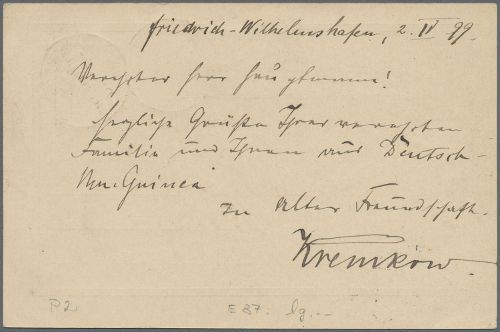 Friedrich-Wilhelmshafen, 2. IV 99.
Verehrter Herr Hauptmann!
Herzliche Grüße Ihrer verehrten
Familie und Ihnen aus Deutsch-
Neu-Guinea
In alter Freundschaft
Kremkow.
P2
E 37. lg.--